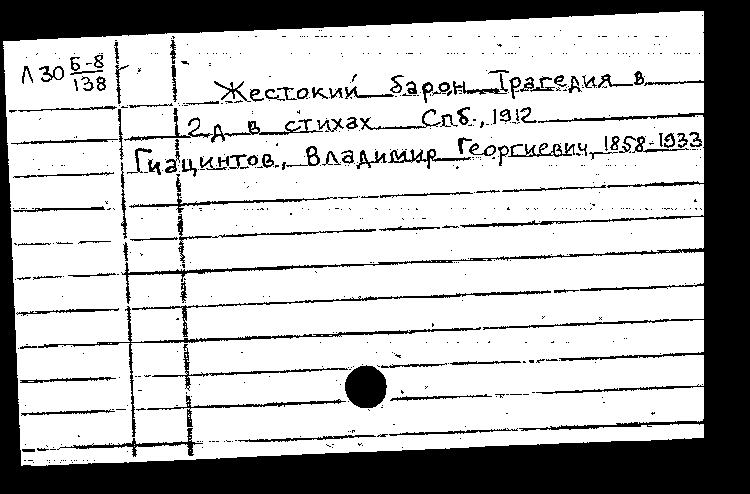 Л 30 Б-8/138
Жестокий барон. Трагедия в
2 д. в стихах. Спб., 1912
Гиацинтов, Владимир Георгиевич, 1858-1933